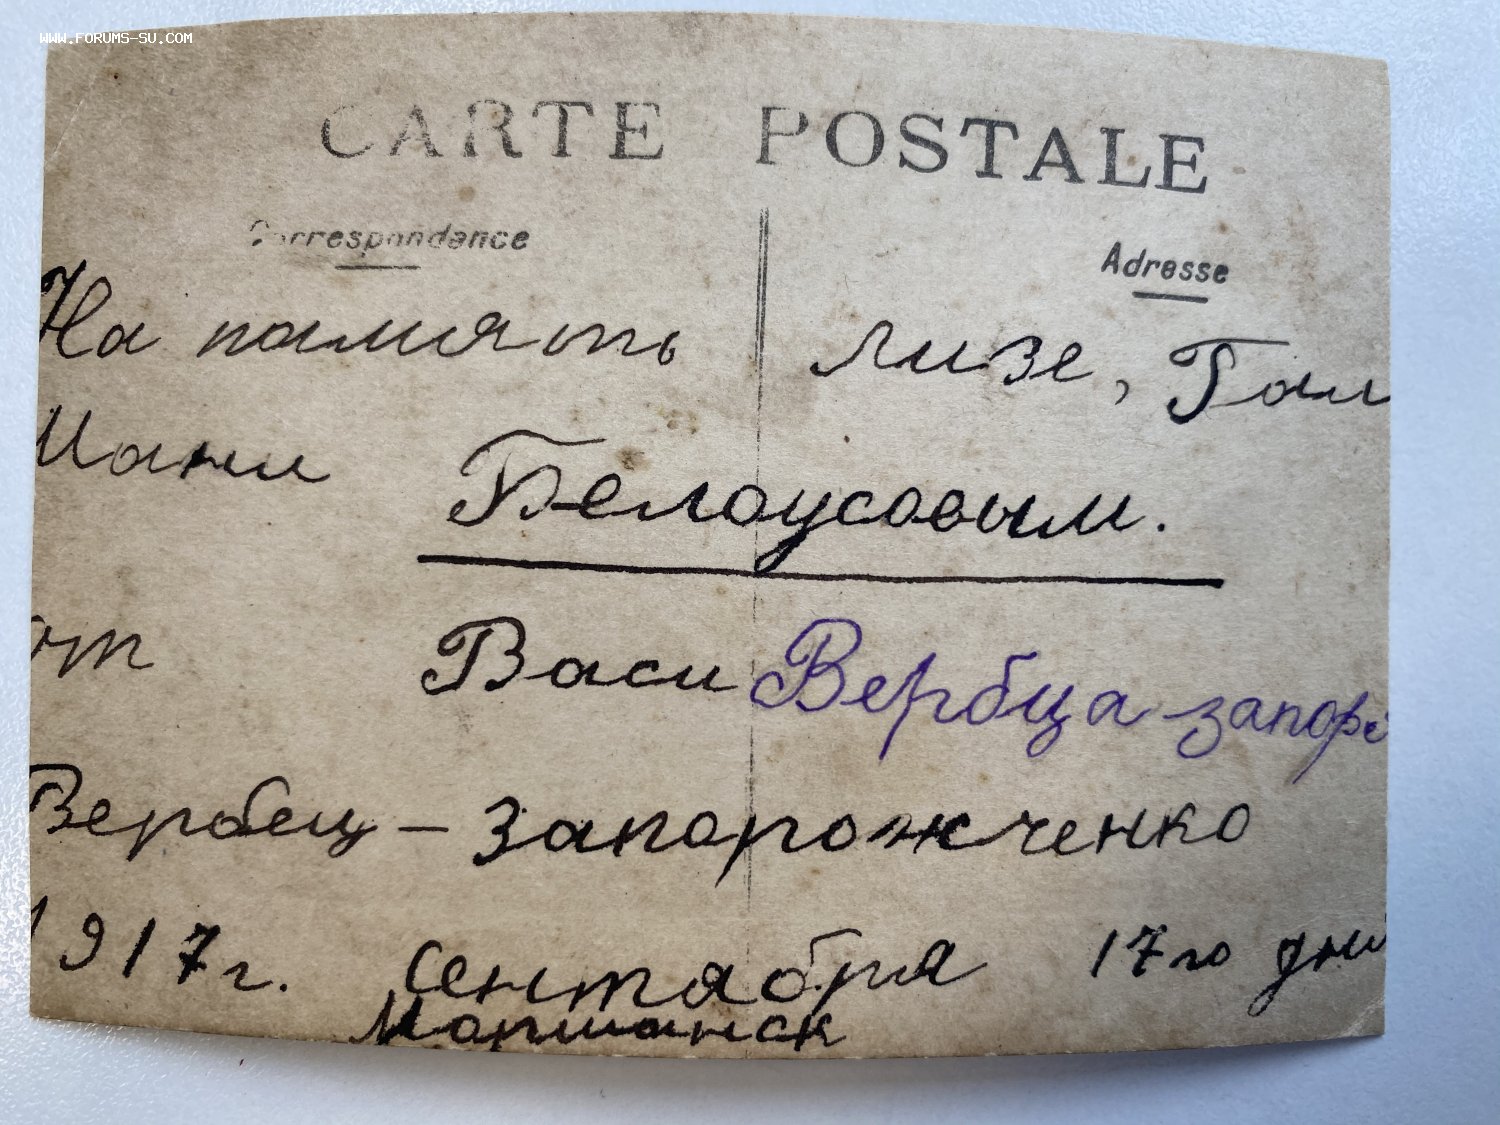 WWW.FORUMS-SU.COM
CARTE POSTALE
Correspondance
Adresse
На память Лизе, Гал
Мани Белоусовым.
от Васи Вербца запоро
Вербец - Запорожченко
1917г. Сентября 17го дня
Моршанск